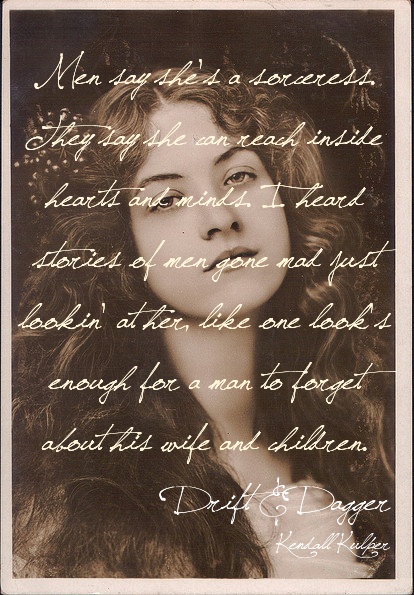 Men say she's a sorceress.
They say she can reach inside
hearts and minds. I heard
stories of men gone mad just
lookin' at her, like one look's
enough for a man to forget
about his wife and children.
Drift & Dagger
Kendall Kulper